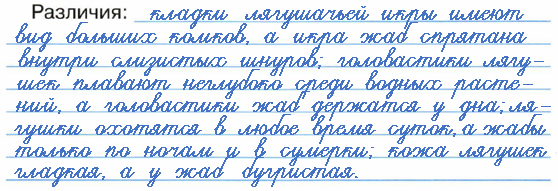 Различия: кладки лягушачьей икры имеют
вид больших комков, а икра жаб спрятана
внутри слизистых шнуров; головастики лягу-
шек плавают неглубоко среди водных расте-
ний, а головастики жаб держатся у дна; ля-
гушки охотятся в любое время суток, а жабы
только по ночам и в сумерки; кожа лягушек
гладкая, а у жаб бугристая.